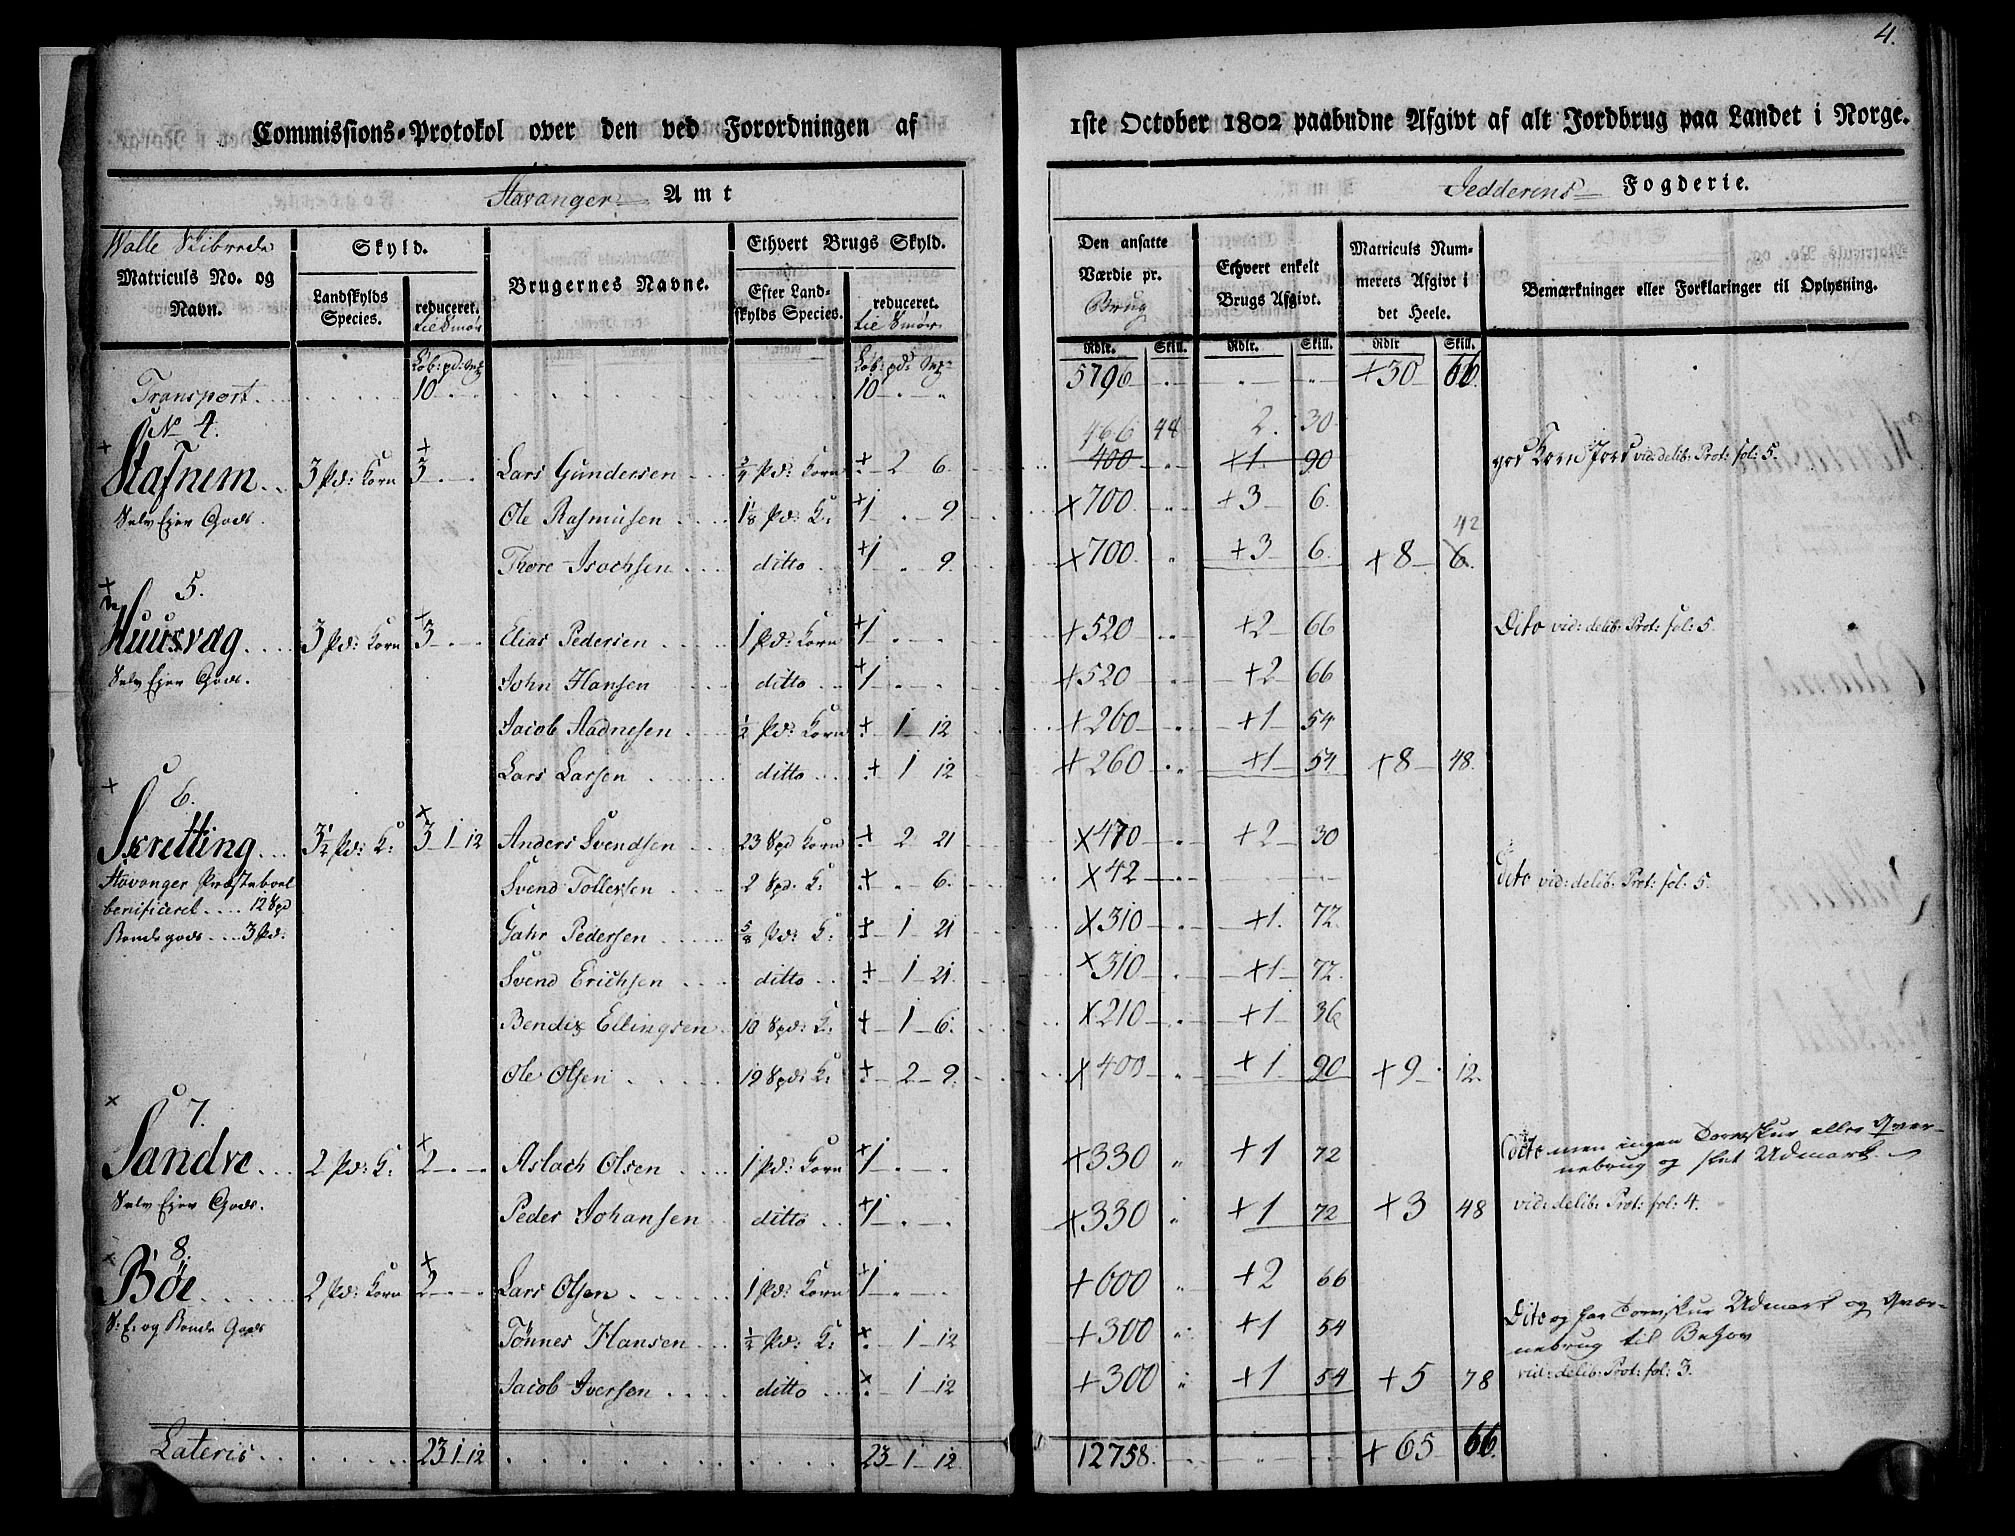 4.
Commissions-Protokol over den ved Forordningen af 1ste October 1802 paabudne Afgivt af alt Jordbrug paa Landet i Norge.
Stavanger Amt Jedderens Fogderie.
Walle Skibrede
Matriculs No. og Navn.
Skyld.
Landskylds Species.
reduceret. til Smör
Brugernes Navne.
Ethvert Brugs Skyld.
Efter Landskylds Species.
reduceret. til Smör
Den ansatte Værdie pr. Brug
Ethvert enkelt Brugs Afgivt.
Matriculs Nummerets Afgivt i det Heele.
Bemærkninger eller Forklaringer til Oplysning.
Rdlr. Skill. Rdlr. Skill. Rdlr Skill.
Löb: pd: Mk Löb: pd: Mk
Transport 10 - - 10 - " 5796 - - - +30 66
No 4. 466 48 2. 30
Stafnem 3 Pd: Korn 3 - - Lars Gundersen 3/4 Pd: Korn - 2 6. 400 - +1. 90 god Korn Jord vid: delib: Prot: fol: 5.
Selv Ejer Gods. Ole Rasmusen 1 1/8 Pd: K: 1 - 9 ×700 - +3 6.
42
Thore Isachsen ditto 1 - 9. ×700 " +3 6. +8 6.
5.
Huusvæg 3 Pd: Korn 3 - - Elias Pedersen 1 Pd: Korn 1 - - +520 - +2 66 Dito vid: delib: Prot: fol: 5.
Selv Ejer Gods. John Hansen ditto 1 - - +520 - +2 66
Jacob Aadnesen 1/2 Pd: Korn - 1 12 +260 - +1 54
Lars Larsen ditto - 1 12 +260 - +1 54 +8 48.
6.
Skretting 3 1/2 Pd: K: 3 1 12 Anders Svendsen 23 Spd Korn - 2 21 ×470 - +2 30
Stavanger Præsteboel Svend Tollefsen 2 Spd. K: - - 6. ×42 - - - Dito vid: delib: Prot: fol: 5.
benificeret 12 Spd
Bonde gods 3 Pd: Gahr Pedersen 5/8 Pd: K: - 1 21 ×310 - +1. 72.
Svend Erichsen ditto - 1 21. ×310 - +1 72.
Bendix Ellingsen 10 Spd: K: - 1 6. ×210 - +1 36
Ole Olsen 19 Spd: K: - 2 9. ×400 " +1 90 +9 12.
7.
Sandve 2 Pd: K: 2 - - Aslach Olsen 1 Pd: Korn 1 - - +330 " +1 72 dito men ingen Torvskur eller Qver-
nebrug og slet Udmark.
Selv Ejer Gods. Peder Johansen ditto 1 - - +330 " +1 72 +3 48 vid: delib: Prot: fol: 4.
8.
Böe 2 Pd: Korn 2 - - Lars Olsen 1 Pd: Korn 1 - - +600 " +2 66
S: E: og Bonde Gods Tönnes Hansen 1/2 Pd: K: - 1 12 +300 " +1 54 Dito og har Torvskur Udmark og Qvær-
nebrug til Behov
Jacob Iversen ditto - 1 12 +300 " +1 54 +5 78 vid: delib: Prot: fol: 3.
Lateris 23 1 12 23 1 12. 12758. - - - +65 66.